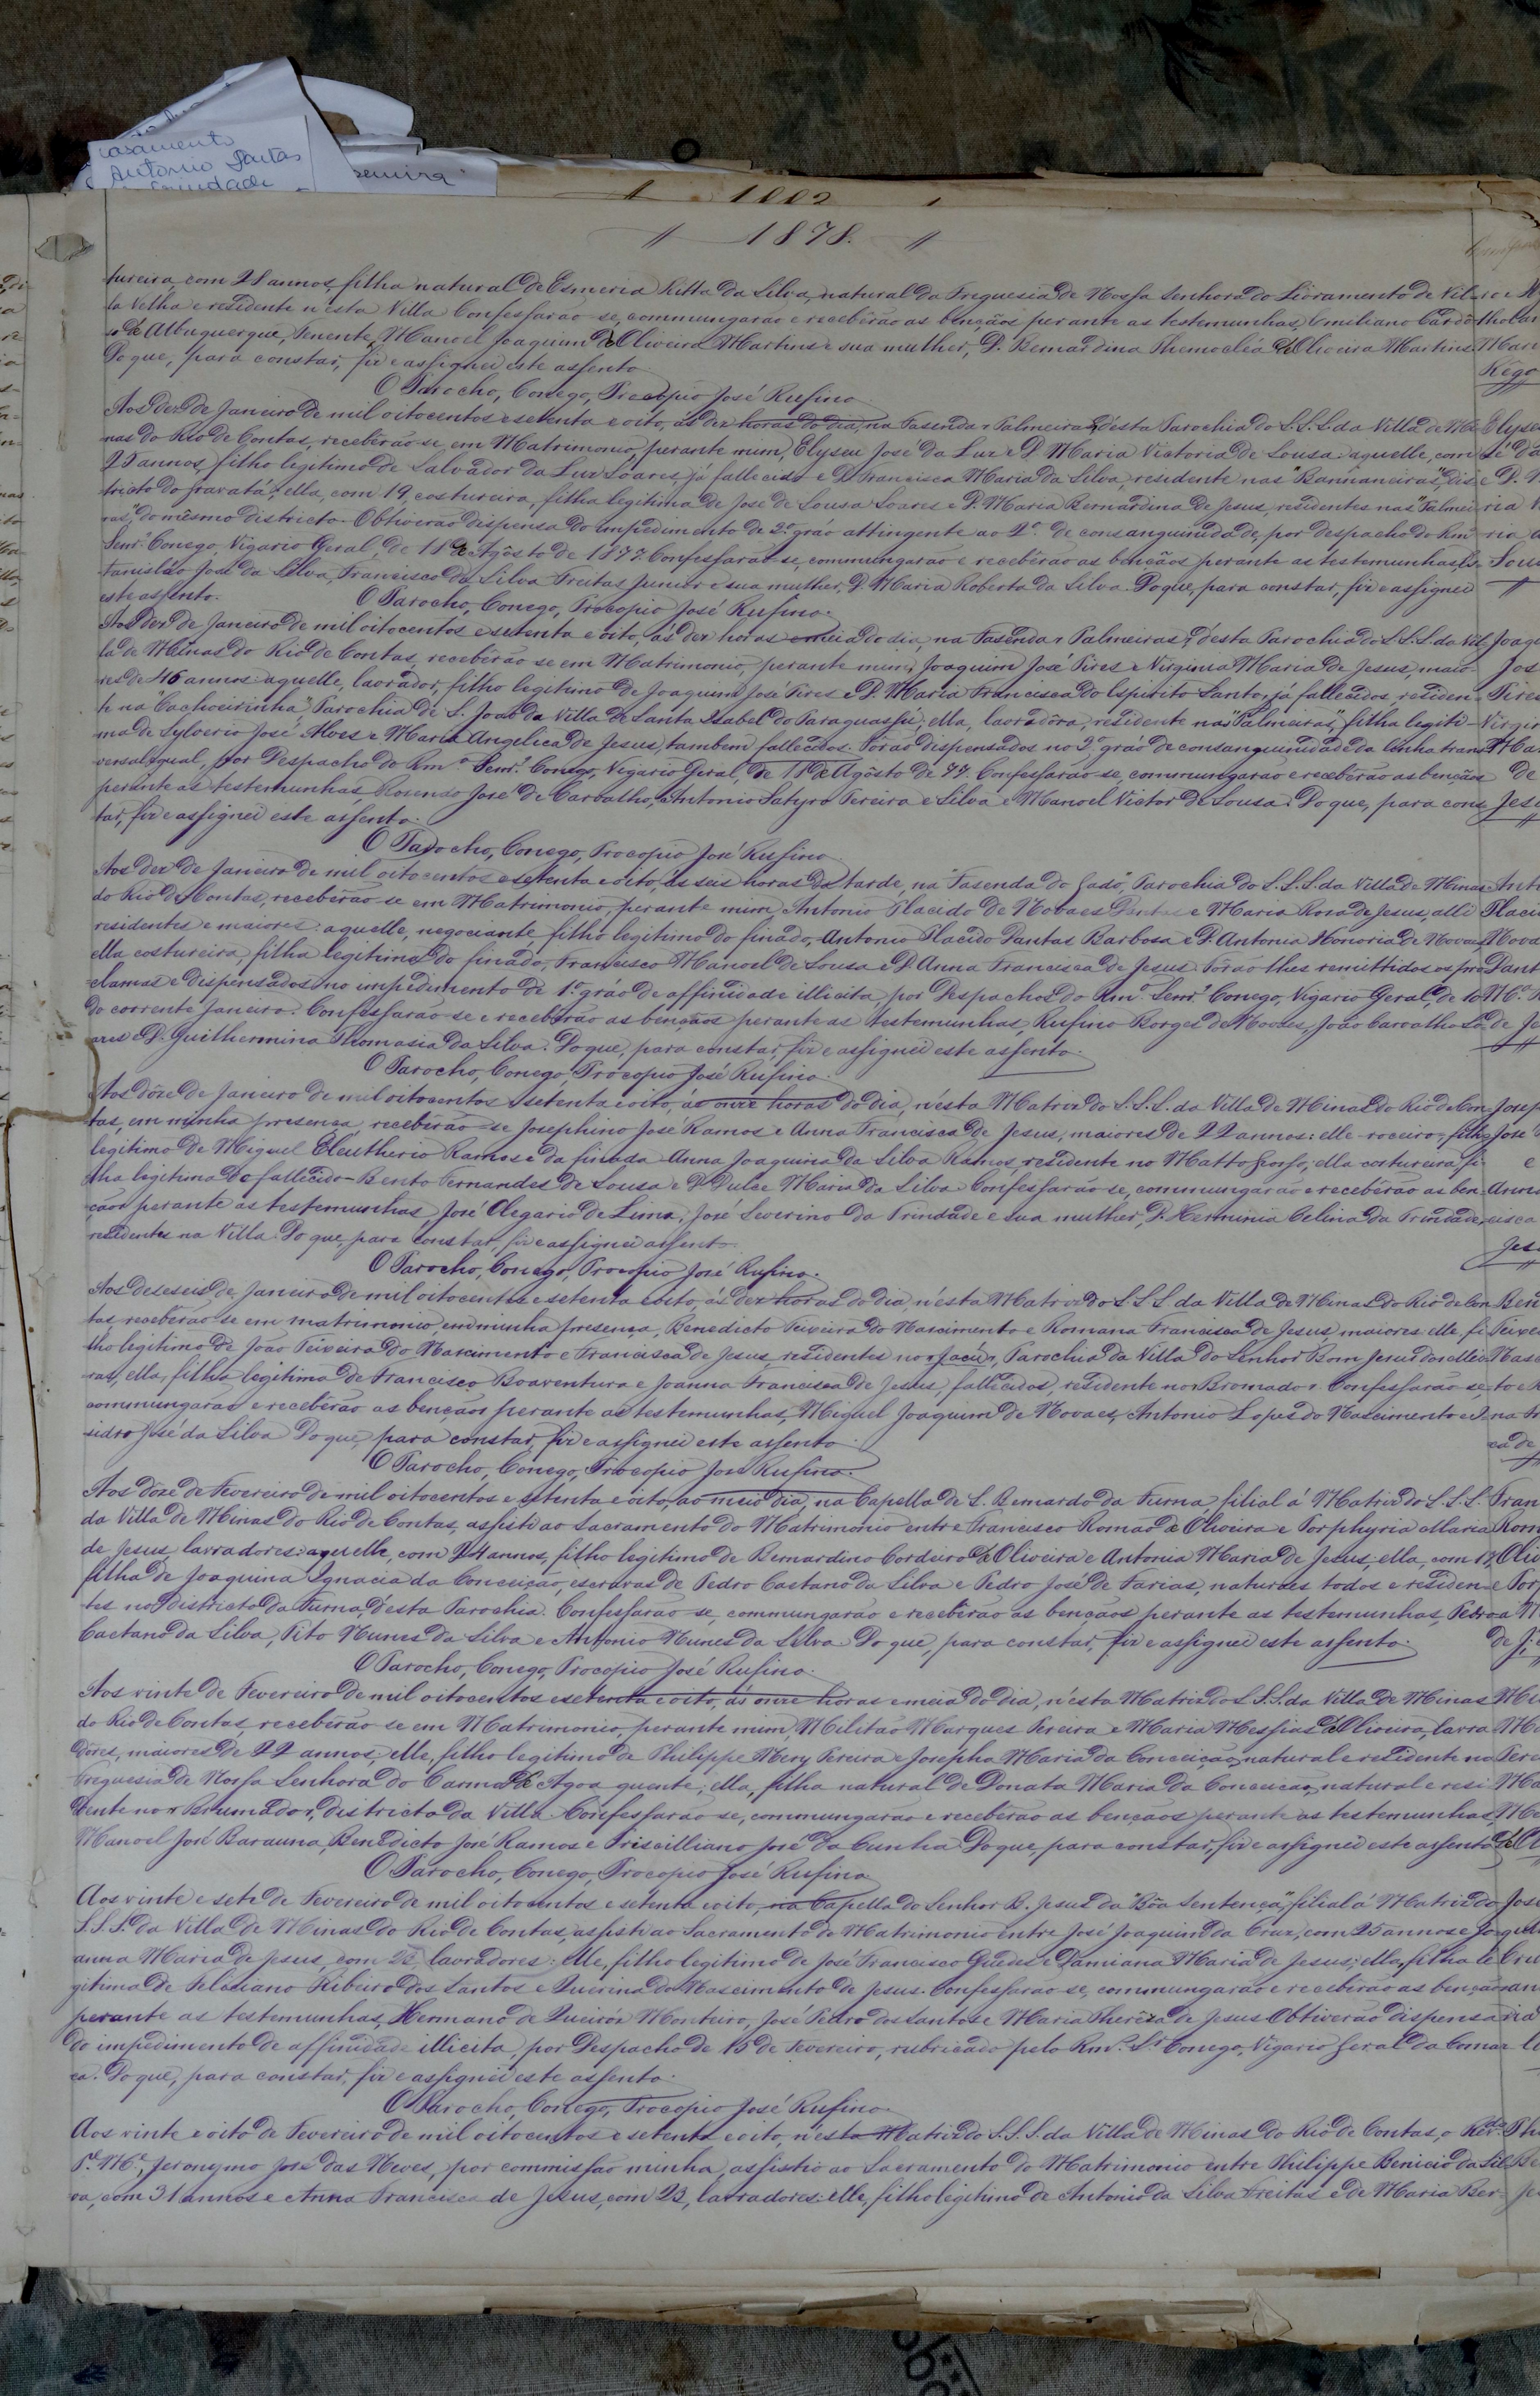 casamento
Antonio Dantas
1878.
tureira, com 21 annos, filha natural de Esmeria Ritta da Silva, natural da Freguesia de Nossa Senhora do Livramento de Vil-
la Velha e residente n'esta Villa Confessarão-se, commungarão e receberão as bençãos perante as testemunhas, Emiliano Cardo-
so de Albuquerque, Tenente, Manoel Joaquim de Oliveira Martins e sua mulher, D. Bernardina Themoclia de Oliveira Martins.
Do que, para constar, fiz e assignei este assento
O Parocho, Conego, Procopio José Rufino.
Aos dez de Janeiro de mil oitocentos e setenta e oito, ás dez horas do dia, na Fasenda "Palmeiras", d'esta Parochia do S.S.S. da Villa de Mi-
nas do Rio de Contas, receberão-se, em Matrimonio, perante mim, Elyseu José da Luz e D. Maria Victoria de Sousa: aquelle, com
25 annos, filho legitimo de Salvador da Luz Soares, já fallecido e D. Francisca Maria da Silva, residente nas "Bannaneiras", dis-
tricto do Gravatá; ella, com 19, costureira, filha legitima de José de Sousa Soares e D. Maria Bernardina de Jesus, residentes nas "Palmei-
ras", do mêsmo districto. Obtiverão dispensa do impedimento de 2.º gráo attingente ao 1.º de consanguinidade, por despacho do Rmº
Senr.º Conego, Vigario Geral, de 11 de Agôsto de 1877. Confessarão-se, commungarão e receberão as bençãos perante as testemunhas, Es-
tanisláo José da Silva, Francisco da Silva Freitas Junior e sua mulher, D. Maria Roberta da Silva. Do que, para constar, fiz e assignei
este assento.
O Parocho, Conego, Procopio José Rufino.
Aos dez de Janeiro de mil oitocentos e setenta e oito, ás dez horas e meia do dia, na Fasenda "Palmeiras", d'esta Parochia do S.S.S. da Vil-
la de Minas do Rio de Contas, receberão-se em Matrimonio, perante mim, Joaquim José Pires e Virginia Maria de Jesus, maio-
res de 46 annos: aquelle, lavrador, filho legitimo de Joaquim José Pires e D. Maria Francisca do Espirito Santo, já fallecidos, residen-
te na "Cachoeirinha", Parochia de S. João da Villa de Santa Isabel do Paraguassú; ella, lavradôra, residente nas "Palmeiras", filha legiti-
ma de Sylverio José Alves e Maria Angelica de Jesus, tambem fallecidos. Forão dispensados no 2.º gráo de consanguinidade da linha trans-
versal igual, por Despacho do Rmº Senr.º Conego, Vigario Geral, de 11 de Agôsto de 77. Confessarão-se, commungarão e receberão as bençãos
perante as testemunhas, Rosendo José de Carvalho, Antonio Satyro Pereira e Silva e Manoel Victor de Sousa. Do que, para cons-
tar, fiz e assignei este assento.
O Parocho, Conego, Procopio José Rufino
Aos dez de Janeiro de mil oitocentos e setenta e oito, ás seis horas da tarde, na "Fasenda do Gado", Parochia do S.S.S. da Villa de Minas
do Rio de Contas, receberão-se em Matrimonio, perante mim, Antonio Placido de Novaes Dantas e Maria Rosa de Jesus, alli
residentes e maiores: aquelle, negociante, filho legitimo do finado, Antonio Placido Dantas Barbosa e D. Antonia Honoria de Novaes
ella costureira, filha legitima do finado, Francisco Manoel de Sousa e D. Anna Francisca de Jesus. Fôrão lhes remittidos os pro-
clamas e dispensados no impedimento de 1.º gráo de affinidade illicita, por Despachos do Rmº Senr.º Conego, Vigario Geral, de 10
do corrente Janeiro. Confessarão-se e receberão as bençãos perante as testemunhas, Rufino Borges de Novaes, João Carvalho So-
ares e D. Guilhermina Thomasia da Silva. Do que, para constar, fiz e assignei este assento.
O Parocho, Conego, Procopio José Rufino.
Aos dôze de Janeiro de mil oitocentos e setenta e oito, ás onze horas do dia, n'esta Matriz do S.S.S. da Villa de Minas do Rio de Con-
tas, em minha presença, receberão-se Josephino José Ramos e Anna Francisca de Jesus, maiores de 22 annos: elle - roceiro, filho
legitimo de Miguel Eleutherio Ramos e da finada Anna Joaquina da Silva Ramos, residente no Matto Grosso; ella costureira, fi-
lha legitima do fallecido - Bento Fernandes de Sousa e D. Dulce Maria da Silva. Confessarão-se, commungarão e receberão as ben-
çãos perante as testemunhas, José Olegario de Lima, José Severino da Trindade e sua mulher, D. Herminia Celina da Trindade,
residentes na Villa. Do que, para constar, fiz e assignei assento.
O Parocho, Conego, Procopio José Rufino.
Aos deseseis de Janeiro de mil oitocentos e setenta e oito, ás dez horas do dia, n'esta Matriz do S.S.S. da Villa de Minas do Rio de Con-
tas, receberão-se em matrimonio, em minha presença, Benedicto Teixeira do Nascimento e Romana Francisca de Jesus, maiores: elle, fi-
lho legitimo de João Teixeira do Nascimento e Francisca de Jesus, residentes no "Jacú", Parochia da Villa do Senhor Bom Jesus dos Mei-
ras, ella, filha legitima de Francisco Boaventura e Joanna Francisca de Jesus, fallecidos, residente no "Bromado". Confessarão-se,
commungarão e receberão as bençãos perante as testemunhas, Miguel Joaquim de Novaes, Antonio Lopes do Nascimento e I-
sidro José da Silva. Do que, para constar, fiz e assignei este assento.
O Parocho, Conego, Procopio José Rufino.
Aos dôze de Fevereiro de mil oitocentos e setenta e oito, ao meio dia, na Capella de S. Bernardo da Furna, filial á Matriz do S.S.S.
da Villa de Minas do Rio de Contas, assisti ao Sacramento do Matrimonio entre Francisco Romão de Oliveira e Porphyria Maria
de Jesus, lavradores: aquelle, com 24 annos, filho legitimo de Bernardino Cordeiro de Oliveira e Antonia Maria de Jesus; ella, com 17,
filha de Joaquina Ignacia da Conceição, escravas de Pedro Caetano da Silva e Pedro José de Farias, naturaes todos e residen-
tes no districto da Furna, d'esta Parochia. Confessarão-se, commungarão e receberão as bençãos perante as testemunhas, Pedro
Caetano da Silva, Tito Nunes da Silva e Antonio Nunes da Silva. Do que, para constar, fiz e assignei este assento.
O Parocho, Conego, Procopio José Rufino.
Aos vinte de Fevereiro de mil oitocentos e setenta e oito, ás onze horas e meia do dia, n'esta Matriz do S.S.S. da Villa de Minas
do Rio de Contas, receberão-se em Matrimonio, perante mim, Militão Marques Pereira e Maria Messias de Oliveira, lavra-
dôres, maiores de 22 annos, elle, filho legitimo de Philippe Nery Pereira e Josepha Maria da Conceição, natural e residente na
Freguesia de Nossa Senhora do Carmo de Agoa quente; ella, filha natural de Donata Maria da Conceição, natural e resi-
dente no "Brumado", districto da Villa. Confessarão-se, commungarão e receberão as bençãos perante as testemunhas,
Manoel José Barauna, Benedicto José Ramos e Priscilliano José da Cunha. Do que, para constar, fiz e assignei este assento
O Parocho, Conego, Procopio José Rufino
Aos vinte e sete de Fevereiro de mil oitocentos e setenta e oito, na Capella do Senhor B. Jesus da "Bôa Sentença", filial á Matriz do
S.S.S. da Villa de Minas do Rio de Contas, assisti ao Sacramento do Matrimonio entre José Joaquim da Cruz, com 25 annos e Jo-
anna Maria de Jesus, com 23, lavradores: elle, filho legitimo de José Francisco Guedes e Damiana Maria de Jesus; ella, filha le-
gitima de Feliciano Ribeiro dos Santos e Quirina do Nascimento de Jesus. Confessarão-se, commungarão e receberão as bençãos
perante as testemunhas, Hermano de Queiróz Monteiro, José Pedro dos Santos e Maria Therêza de Jesus. Obtiverão dispensa
do impedimento de affinidade illicita, por Despacho de 15 de Fevereiro, rubricado pelo Rmº Sr. Conego, Vigario Geral da Comar-
ca. Do que, para constar, fiz e assignei este assento.
O Parocho, Conego, Procopio José Rufino.
Aos vinte e oito de Fevereiro de mil oitocentos e setenta e oito, n'esta Matriz do S.S.S. da Villa de Minas do Rio de Contas, o Rev.do
P.e M.e, Jeronymo José das Neves, por commissão minha, assistio ao Sacramento do Matrimonio entre Philippe Benicio da Sil-
va, com 31 annos e Anna Francisca de Jesus, com 23, lavradores: elle, filho legitimo de Antonio da Silva Freitas e de Maria Ber-